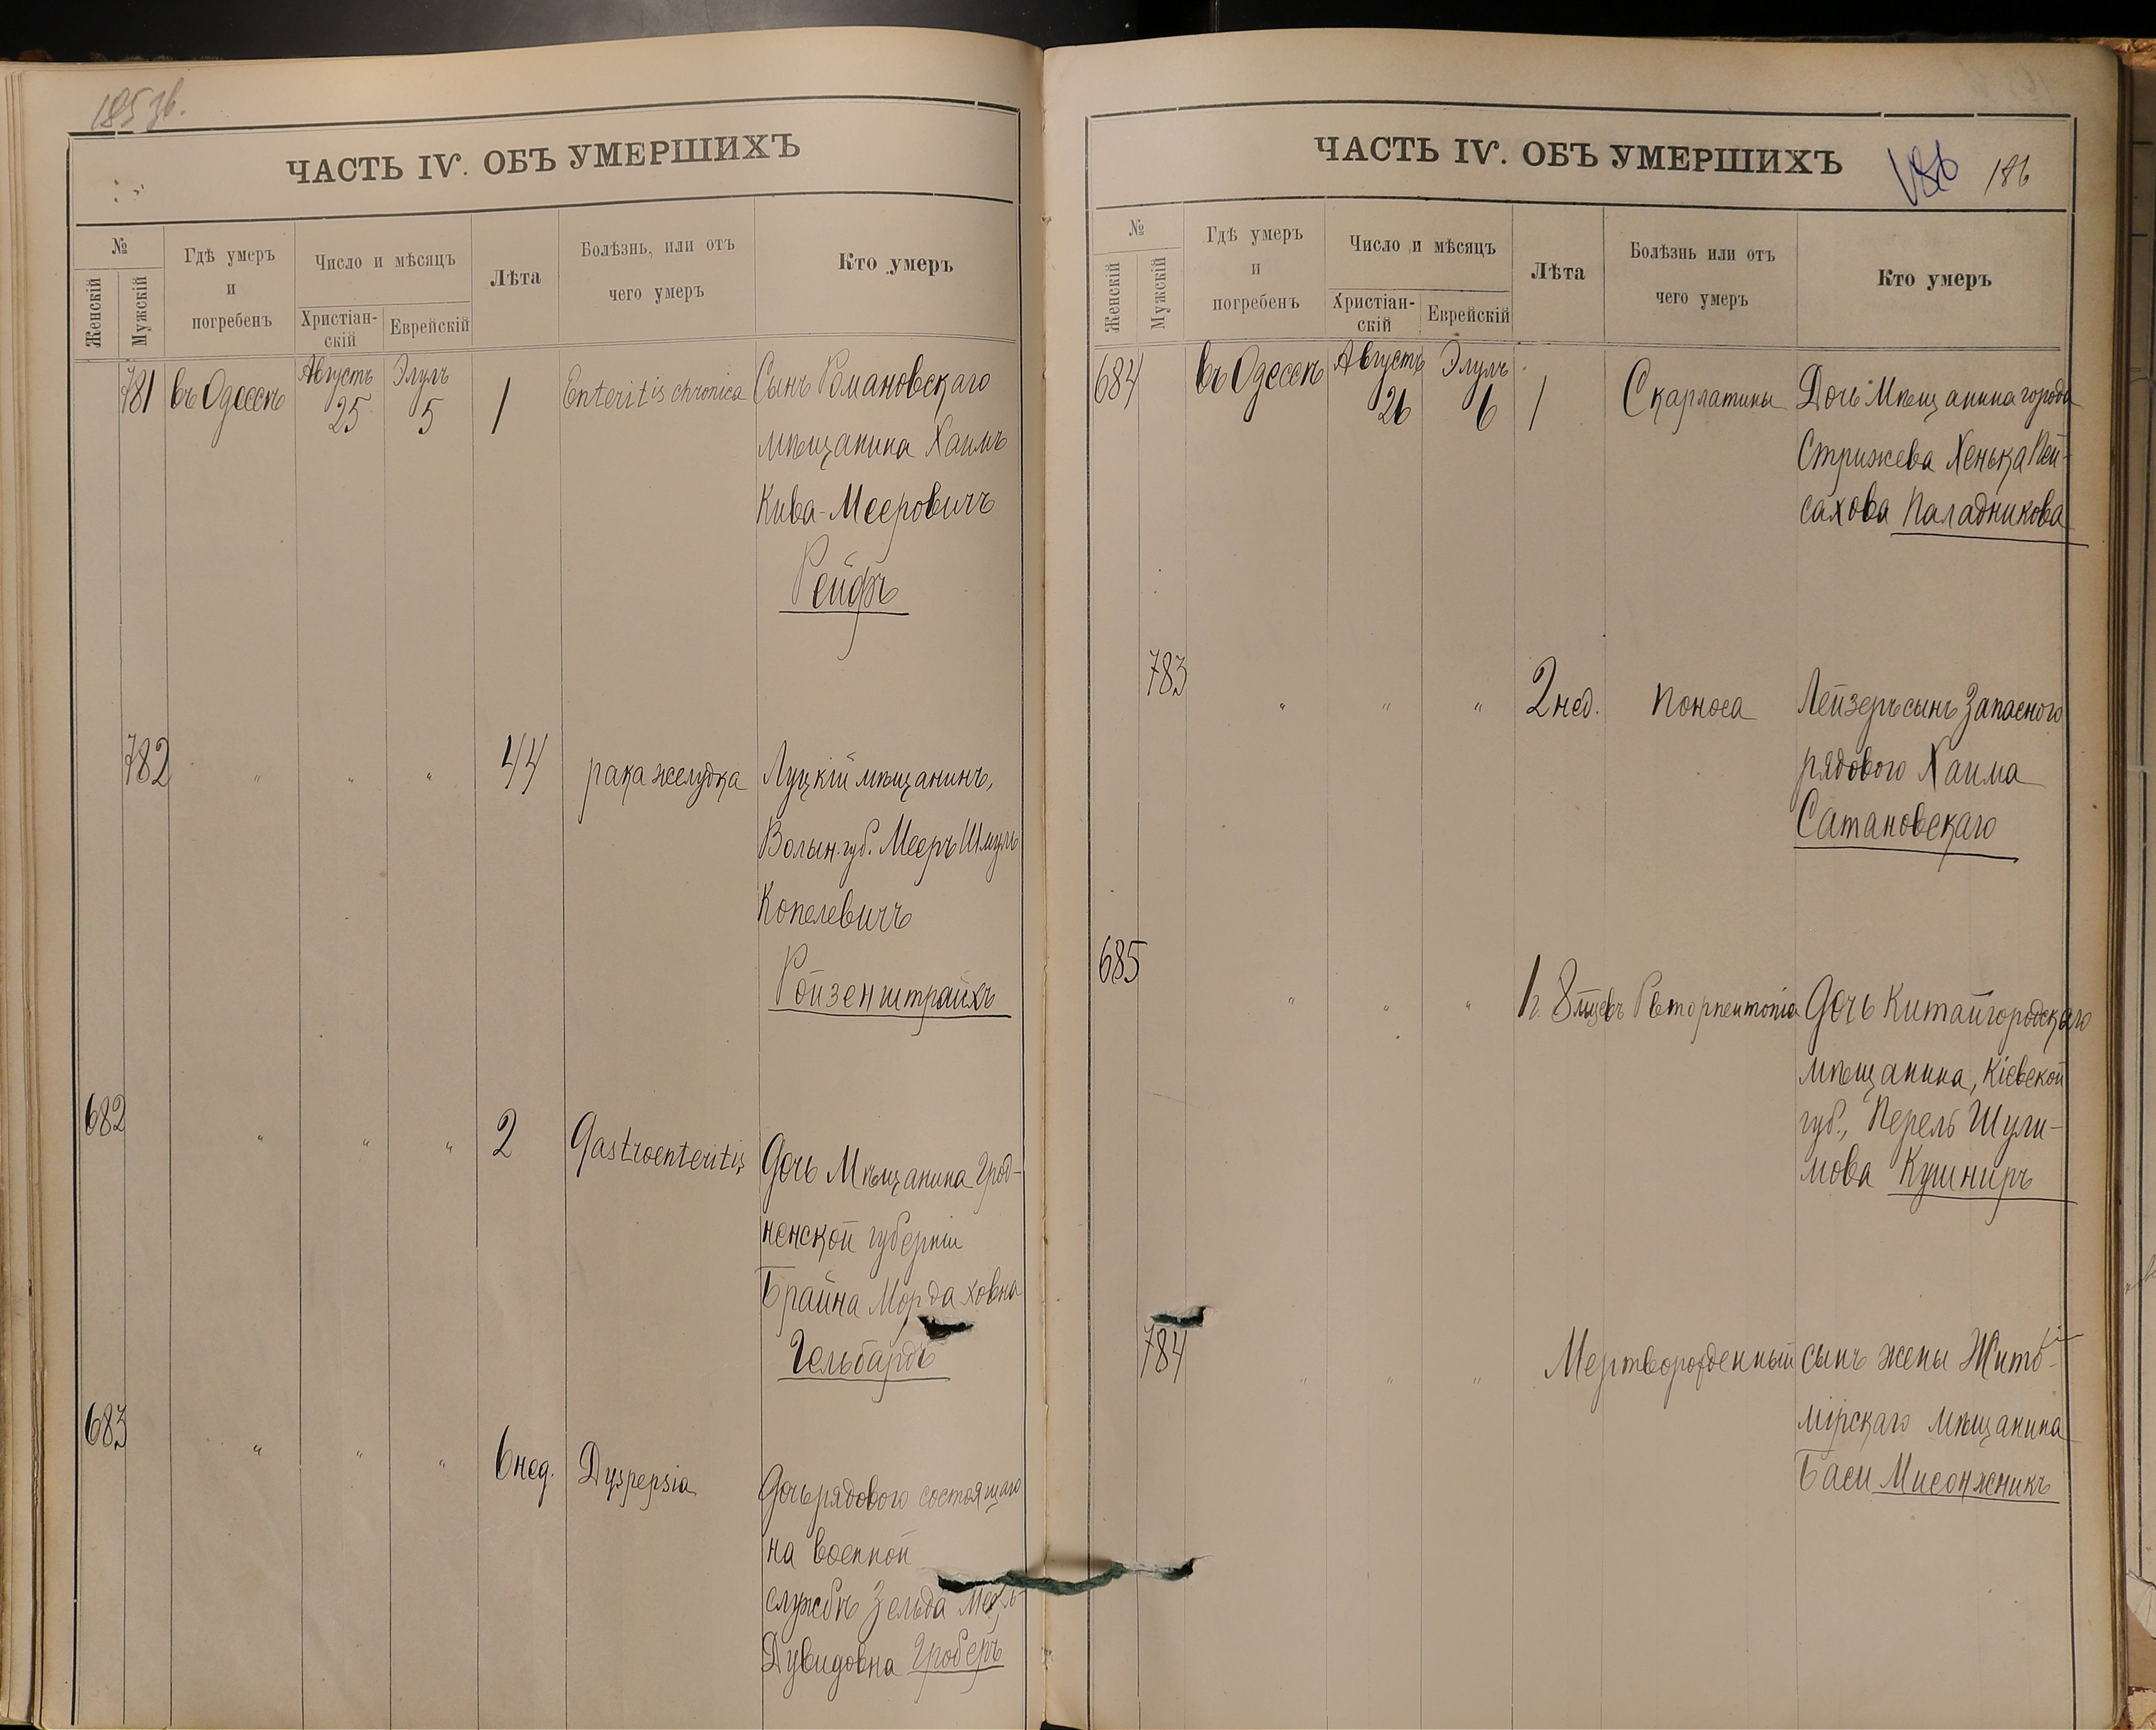 185 зв.
ЧАСТЬ IV. ОБЪ УМЕРШИХЪ
№
Женскій
Мужскій
Гдѣ умеръ
и
погребенъ
Число и мѣсяцъ
Христіан-
скій
Еврейскій
Лѣта
Болѣзнь, или отъ
чего умеръ
Кто умеръ
781 въ Одессѣ Августъ 25 Элулъ 5 1 Enteritis chronica Сынъ Романовскаго
мѣщанина Хаимъ
Кива-Мееровичъ
Рейфъ
782 " " " 44 рака желудка Луцкій мѣщанинъ,
Волын. губ. Мееръ Шмуль
Копелевичъ
Ройзенштрайхъ
682 " " " 2 Gastroenteritis Дочь Мѣщанина Грод-
ненской губерніи
Брайна Мордаховна
Гельбардъ
683 " " " 6 нед. Dyspepsia Дочь рядового состоящаго
на военной
службѣ Зельда
Дувидовна Гроберъ
ЧАСТЬ IV. ОБЪ УМЕРШИХЪ
186 186
№
Женскій
Мужскій
Гдѣ умеръ
и
погребенъ
Число и мѣсяцъ
Христіан-
скій
Еврейскій
Лѣта
Болѣзнь или отъ
чего умеръ
Кто умеръ
684 въ Одессѣ Августъ 26 Элулъ 6 1 Скарлатины Дочь Мѣщанина города
Стрижева Хенька Пей-
сахова Паладникова
783 " " " 2 нед. Поноса Лейзеръ сынъ Запасного
рядового Хаима
Сатановскаго
685 " " " 1 г. 8 мѣцевъ Дочь Китайгородскаго
мѣщанина, Кіевской
губ., Перель Шули-
мова Кушниръ
784 " " " Мертворожденный сынъ жены Жито-
мірскаго мѣщанина
Баси Мисонжникъ